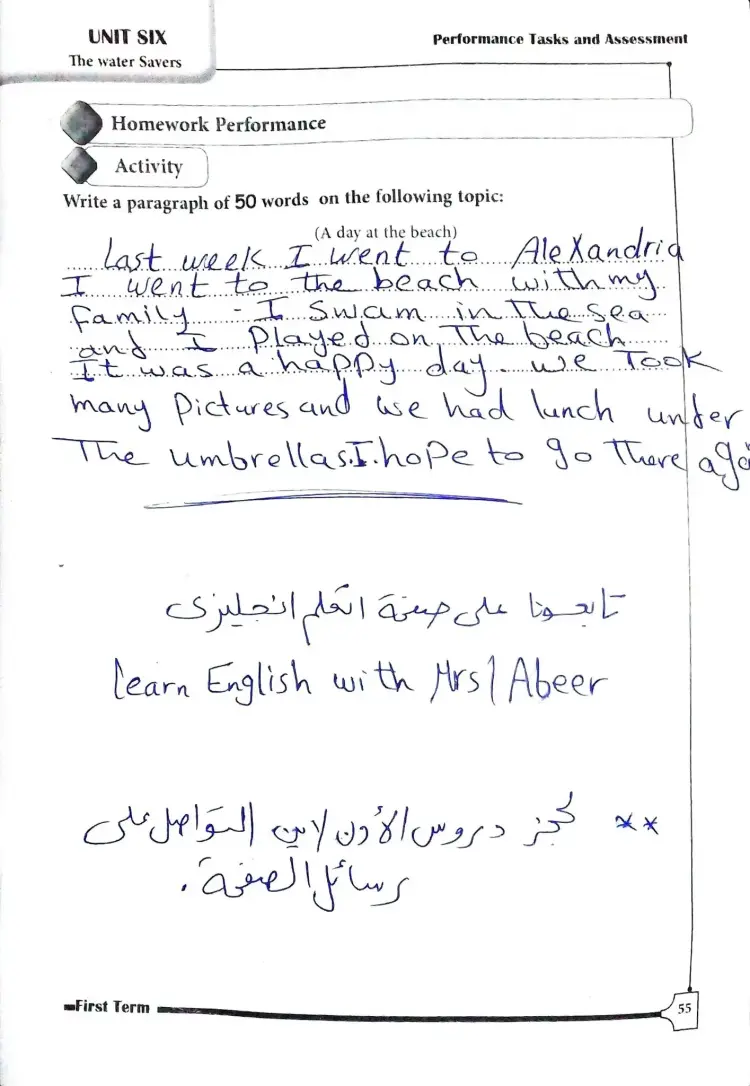 UNIT SIX
The water Savers
Performance Tasks and Assessment
Homework Performance
Activity
Write a paragraph of 50 words on the following topic:
(A day at the beach)
Last week I went to Alexandria
I went to the beach with my
family - I swam in the sea
and I Played on The beach
It was a happy day. we Took
many Pictures and we had lunch under
The umbrellas. I hope to go There agai
تابعونا على صفحة اتعلم انجليزى
learn English with Mrs/ Abeer
** لحجز دروس الأون لاين التواصل على
رسائل الصفحة .
First Term
55